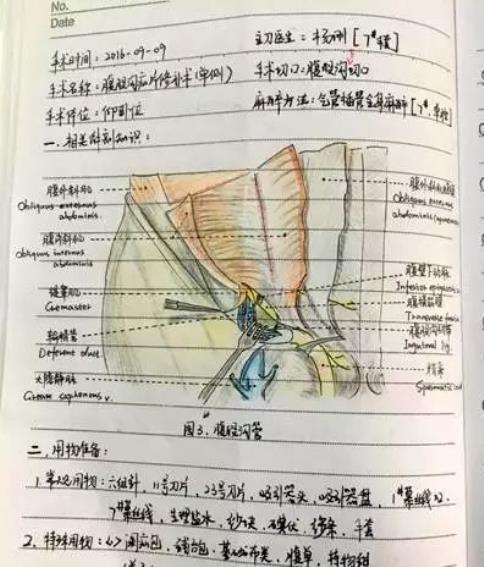 No.
Date
手术时间：2016-09-09
主刀医生：杨刚 [7#手套]
手术名称：腹股沟疝片修补术(单侧)
手术切口：腹股沟切口
手术体位：仰卧位
麻醉方法：气管插管全身麻醉 [7#, 单腔]
一、相关解剖知识：
腹外斜肌
Obliquus externus
abdominis.
腹内斜肌
Obliquus internus
abdominis
提睾肌
Cremaster
输精管
Deferent duct.
大隐静脉
Great saphenous v.
腹外斜肌腱膜
Obliquus externus
abdominis
腹壁下动脉
Inferior epigastric
腹横筋膜
Transverse fascia
腹股沟韧带
Inguinal lig.
精索
Spermatic cord
图3. 腹股沟管
二、用物准备：
1. 常规用物：六组针, 11号刀片, 23号刀片, 吸引器头, 吸引器盘, 1#慕丝线x2,
7#慕丝线, 生理盐水, 纱布, 碘伏, 棉条, 手套
2. 特殊用物：小阑尾包, 辅包, 基础布类, 腹单, 特物组